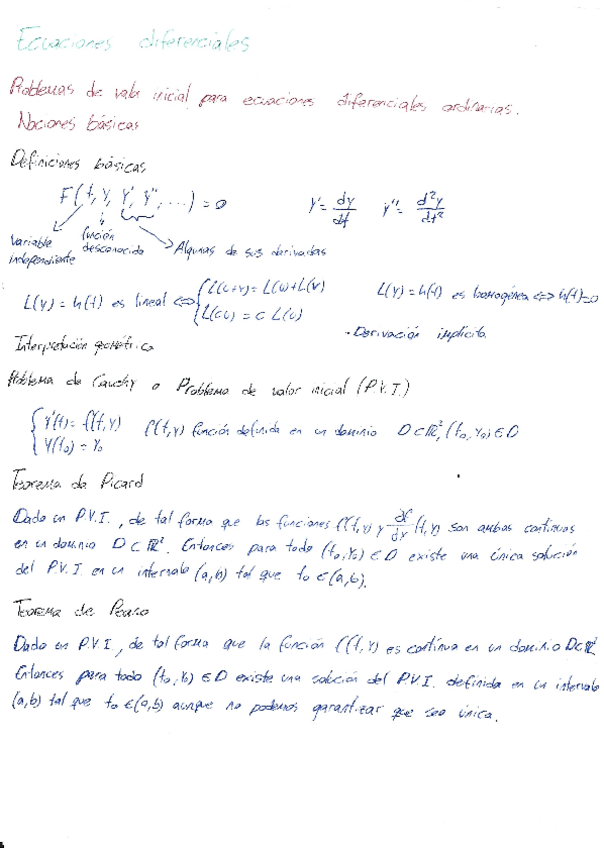 Ecuaciones diferenciales
Problemas de valor inicial para ecuaciones diferenciales ordinarias.
Nociones básicas
Definiciones básicas
F(t, y, y', y'', ...) = 0 y' = dy/dt y'' = d²y/dt²
variable independiente función desconocida Algunas de sus derivadas
L(y) = h(t) es lineal <=> { L(u+v) = L(u)+L(v) L(y) = h(t) es homogénea <=> h(t)=0
L(cu) = c L(u)
· Derivación implícita
Interpretación geométrica
Problema de Cauchy o Problema de valor inicial (P.V.I.)
{ y'(t) = f(t,y) f(t,y) función definida en un dominio D⊂ℝ², (t₀, y₀) ∈ D
y(t₀) = y₀
Teorema de Picard
Dado un P.V.I., de tal forma que las funciones f(t,y) y ∂f/∂x (t,y) son ambas continuas
en un dominio D ⊂ ℝ². Entonces para todo (t₀, y₀) ∈ D existe una única solución
del P.V.I en un intervalo (a,b) tal que t₀ ∈ (a,b).
Teorema de Peano
Dado un P.V.I., de tal forma que la función f(t,y) es continua en un dominio D⊂ℝ²
Entonces para todo (t₀, y₀) ∈ D existe una solución del P.V.I. definida en un intervalo
(a,b) tal que t₀ ∈ (a,b) aunque no podemos garantizar que sea única.